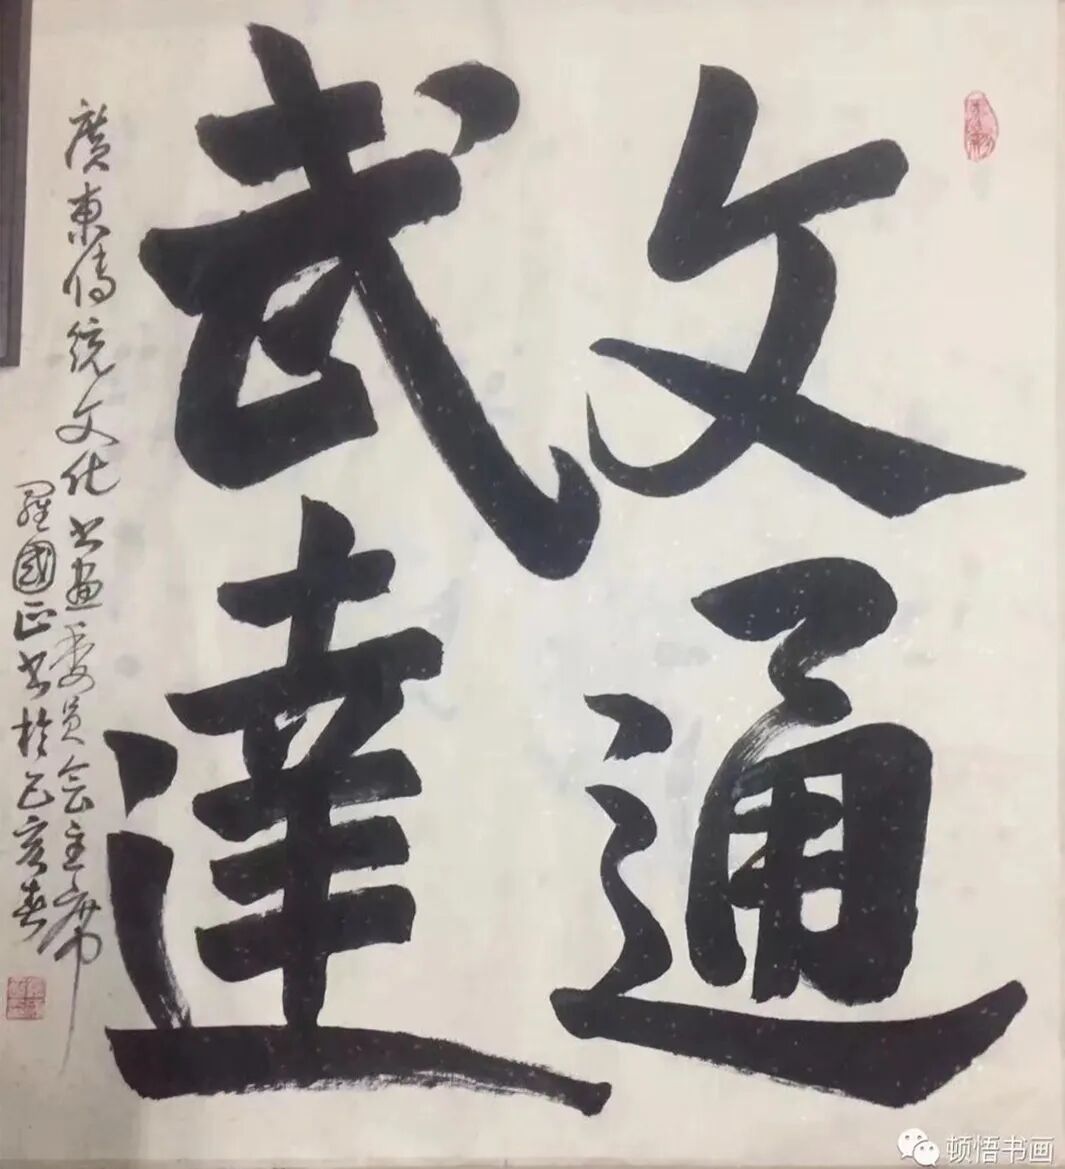 文通
武達
廣東傳統文化书畫委員会主席
羅國正书於己亥春
顿悟书画